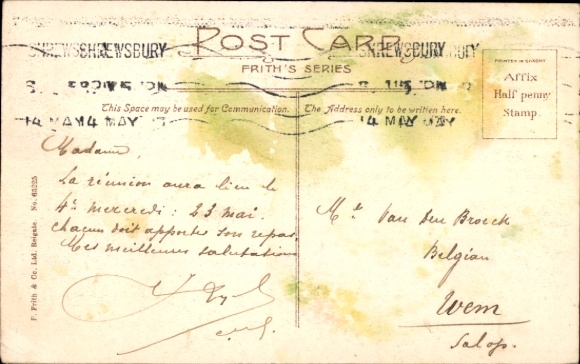 SHREWSBURY SHREWSBURY
POST CARD
FRITH'S SERIES
14 MAY 14 MAY
PRINTED IN SAXONY
Affix
Half penny
Stamp.
This Space may be used for Communication.
The Address only to be written here.
Madame,
La réunion aura lieu le
4e mercredi : 23 mai.
Chacun doit apporter son repas.
Mes meilleures salutations
F. Frith & Co. Ltd. Reigate. No. 63225
Van den Broeck
Belgian
Wem
Salop.